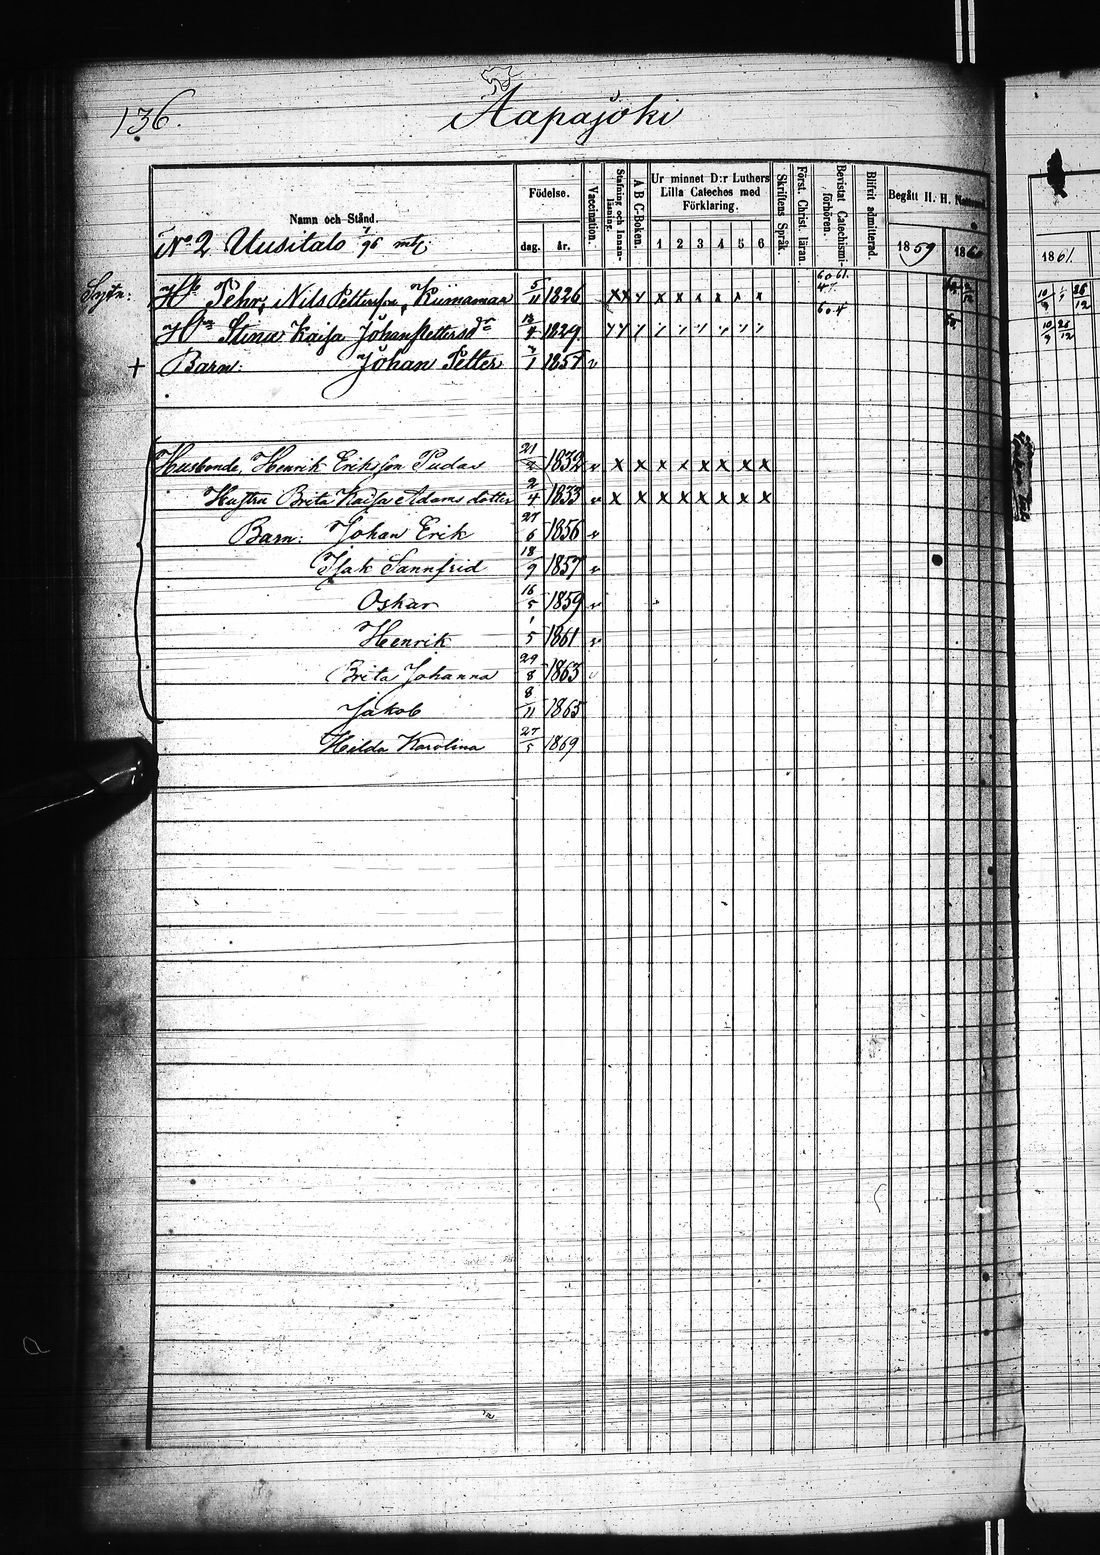 136.
Aapajoki
Namn och Stånd.
Födelse.
dag.
år.
Vaccination.
Stafning och Innan-läsning.
A B C-Boken.
Ur minnet D:r Luthers
Lilla Cateches med
Förklaring.
1 2 3 4 5 6
Skriftens Språk.
Först. Christ. läran.
Bevistat Catechismi-förhören.
Blifvit admitterad.
Begått H. H.
1859
186
1861.
No 2 Uusitalo
Pehr Nils Pettersson 5/11 1826 x x x x x x x x x
Stina Kaisa 1829
+ Barn: Johan Petter 1857 v
Husbonde, Henrik Eriksson Pudas 21/2 1832 v x x x x x x x x
Hustru Brita Kajsa Adamsdotter 2/4 1833 v x x x x x x x x
Barn: Johan Erik 27/6 1856 v
Isak Sannfrid 18/9 1857 v
Oskar 16/5 1859 v
Henrik 1/5 1861 v
Brita Johanna 29/8 1863
Jakob 8/11 1865
Hilda Karolina 27/5 1869